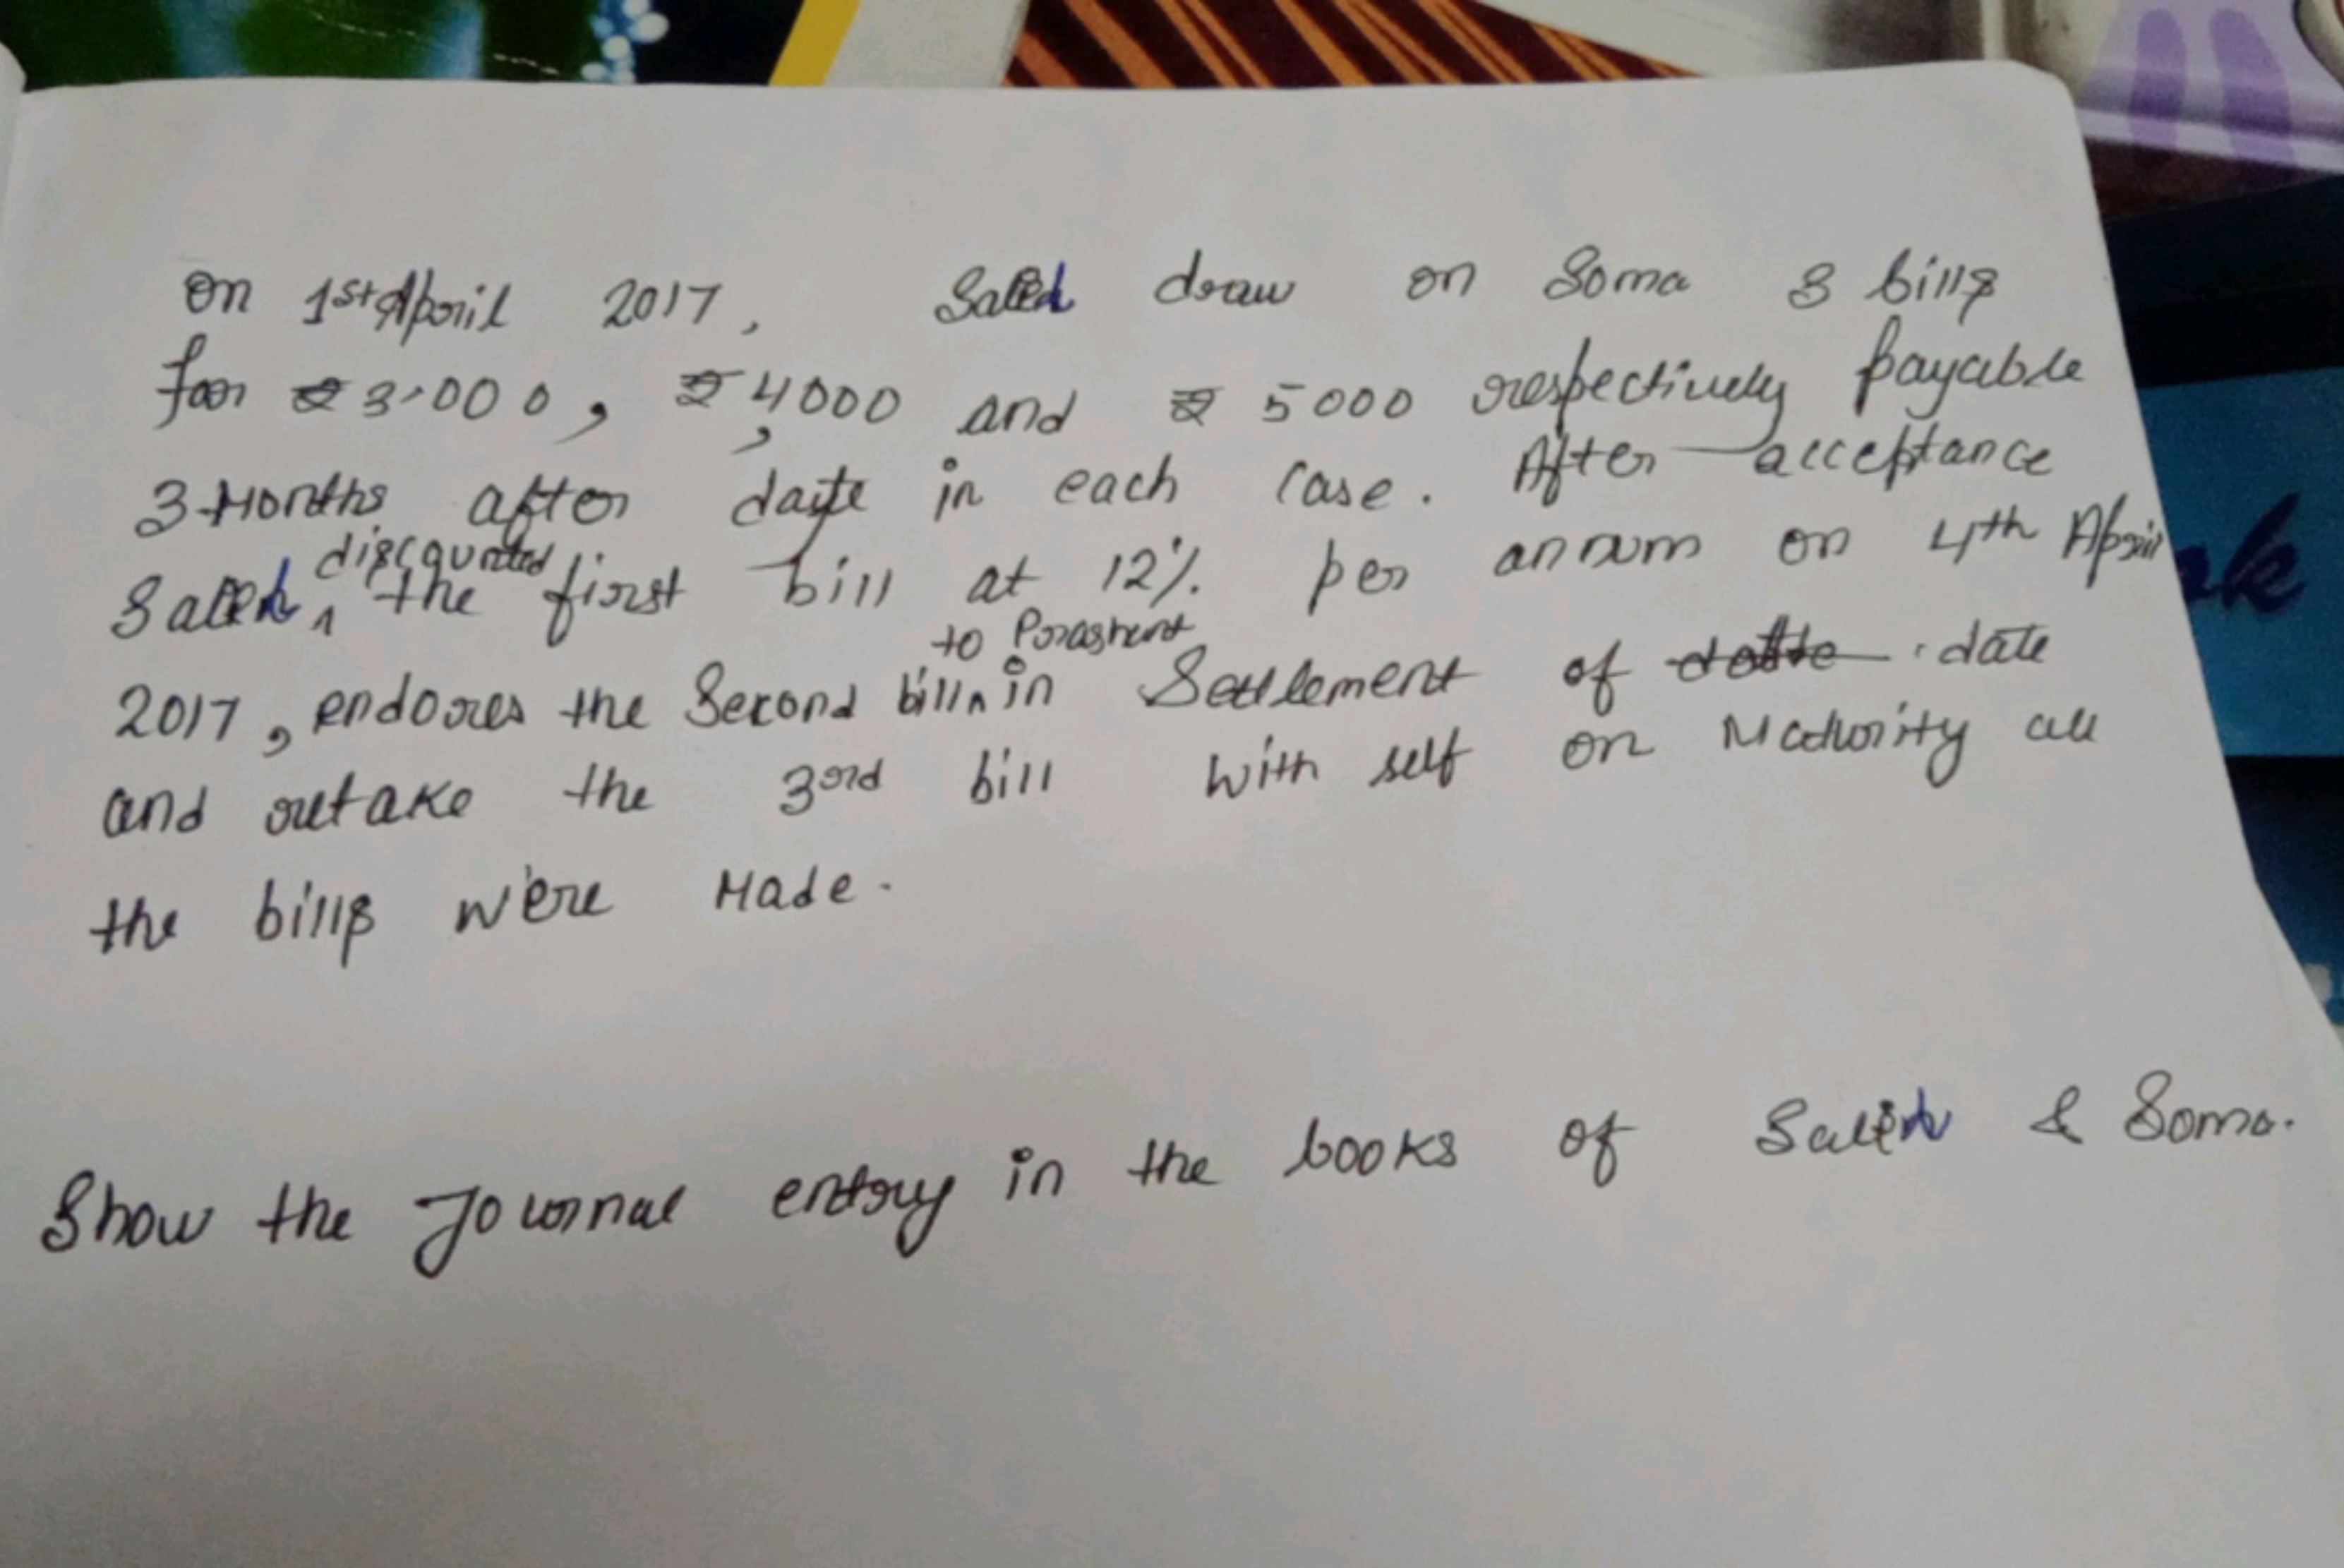 on 1st April 2017, Saled draw on Soma 3 bills
for ₹ 3,000, ₹ 4,000 and ₹ 5000 respectively payable
3 Months after date in each case. After acceptance
discounted
the first bill at 12% per annum on 4th April
to Prashant
2017, endores the Second bill in Settlement of date
and retake the 3rd bill with self on Maturity all
the bills were Made.
Show the Journal entry in the books of & Soma.